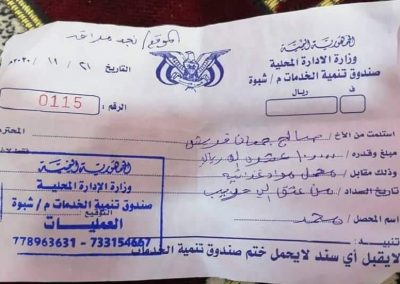 الجمهورية اليمنية
وزارة الإدارة المحلية
صندوق تنمية الخدمات م/ شبوة
الموقع/ نجد
التاريخ ٢١ / ١١ / ٢٠٢٠م
ف
ريال
الرقم : 0115
استلمت من الأخ/ صالح المحترم
مبلغ وقدره/ عشرة ريال فقط لاغير
وذلك مقابل/ مواد غذائية
تاريخ السداد/ من عتق الى
اسم المحصل/ محمد
التوقيع
الجمهورية اليمنية
وزارة الإدارة المحلية
صندوق تنمية الخدمات م/ شبوة
العمليات
778963631 - 733154667
تنبيه:
لا يقبل أي سند لايحمل ختم صندوق تنمية الخدمات